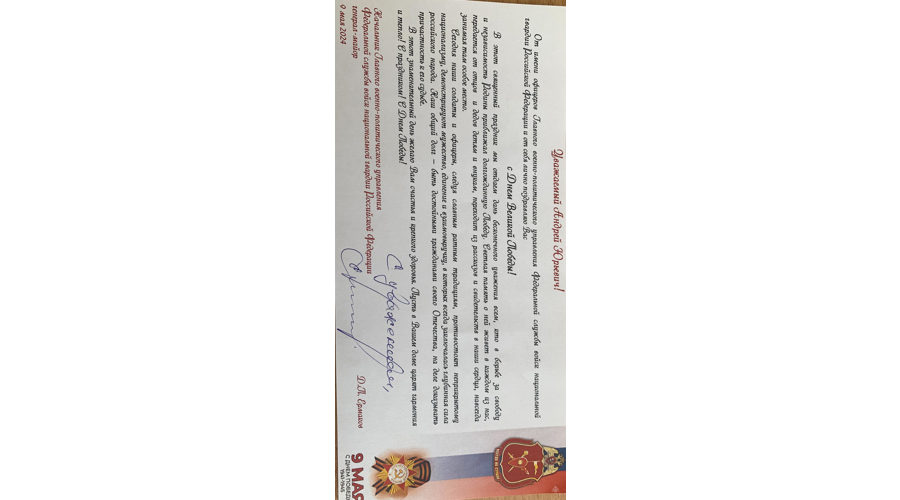 Уважаемый Андрей Юрьевич!
От имени офицеров Главного военно-политического управления Федеральной службы войск национальной
гвардии Российской Федерации и от себя лично поздравляю Вас
с Днем Великой Победы!
В этот священный праздник мы отдаем дань бесконечного уважения всем, кто в борьбе за свободу
и независимость Родины приближал долгожданную Победу. Светлая память о ней живет в каждом из нас,
передается от отцов и дедов детям и внукам, переходит из рассказов и свидетельств в наши сердца, навсегда
занимая там особое место.
Сегодня наши солдаты и офицеры, следуя славным ратным традициям, противостоят неприкрытому
национализму, демонстрируют мужество, единение и взаимовыручку, в которых всегда заключалась глубинная сила
российского народа. Наш общий долг – быть достойными гражданами своего Отечества, на деле доказывать
причастность к его судьбе.
В этот знаменательный день желаю Вам счастья и крепкого здоровья. Пусть в Вашем доме царят гармония
и тепло! С праздником! С Днем Победы!
С уважением,
Начальник Главного военно-политического управления
Федеральной службы войск национальной гвардии Российской Федерации
генерал-майор
Д.П. Ермаков
9 мая 2024
9 МАЯ
С ДНЕМ ПОБЕДЫ
1941-1945